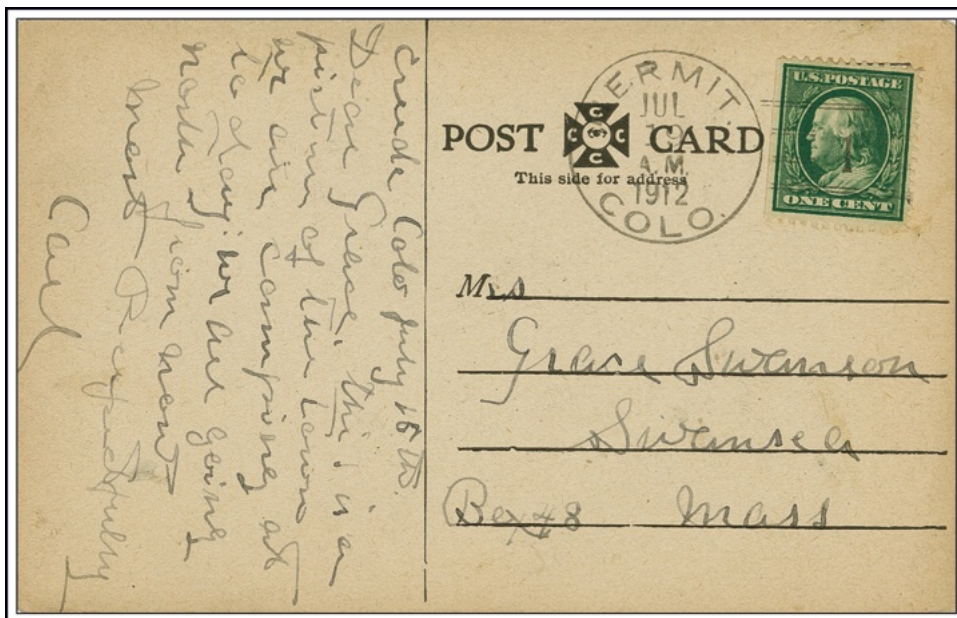 Creede Colo July 18 th.
Dear Grace, this is a
picture of the town
we are camping at
to day. we are going
north from now
Most Respectfully
Carl
POST CARD
C C C C
This side for address
ERMIT
JUL
19
A.M.
1912
COLO.
U.S. POSTAGE
1
ONE CENT
Mrs
Grace Swanson
Swansea
Box 48 Mass